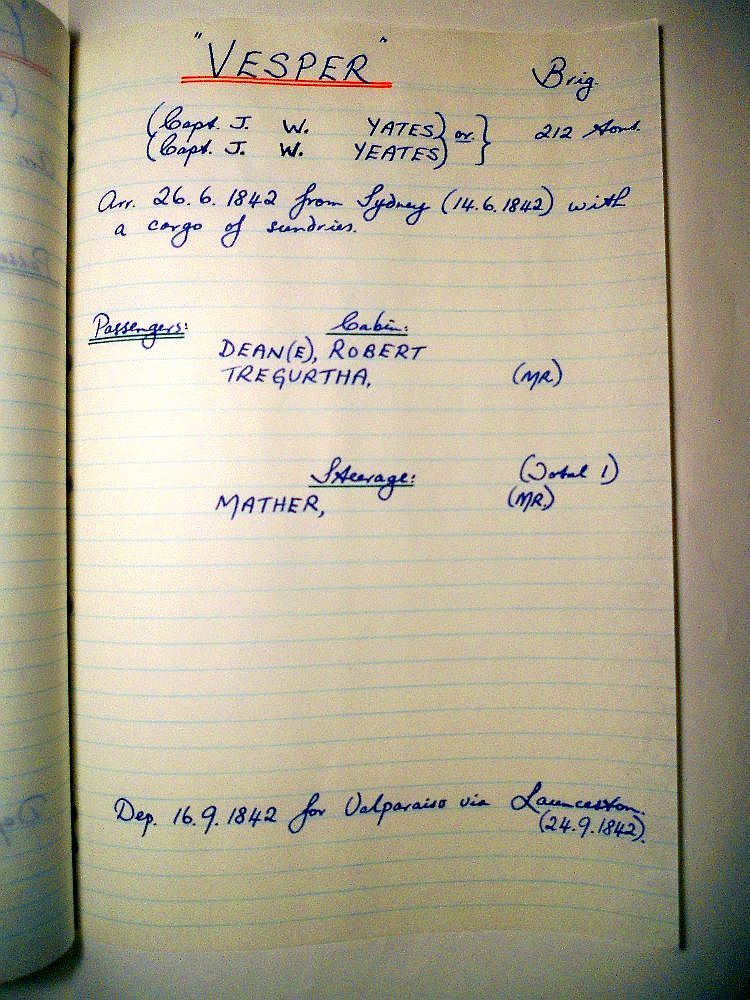 "VESPER" Brig.
(Capt. J. W. YATES) or }
(Capt. J. W. YEATES) 212 tons.
Arr. 26.6.1842 from Sydney (14.6.1842) with
a cargo of sundries.
Passengers: Cabin:
DEAN(E), ROBERT
TREGURTHA, (MR)
Steerage: (Total 1)
MATHER, (MR.)
Dep. 16.9.1842 for Valparaiso via Launceston.
(24.9.1842).